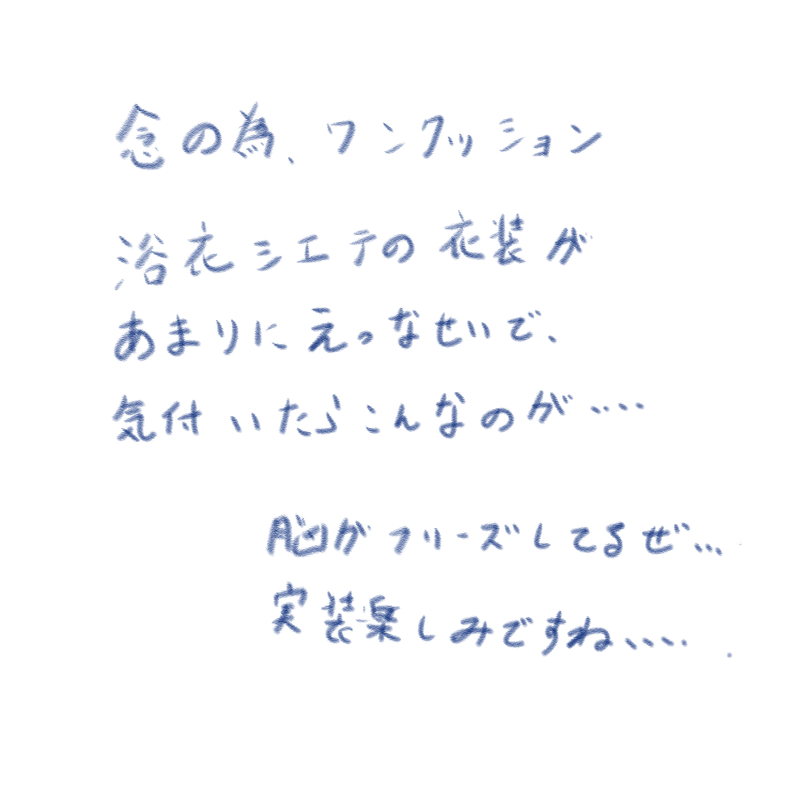 念の為、ワンクッション
浴衣シエテの衣装が
あまりにえっなせいで、
気付いたらこんなのが‥‥
脳がフリーズしてるぜ…
実装楽しみですね、、、、